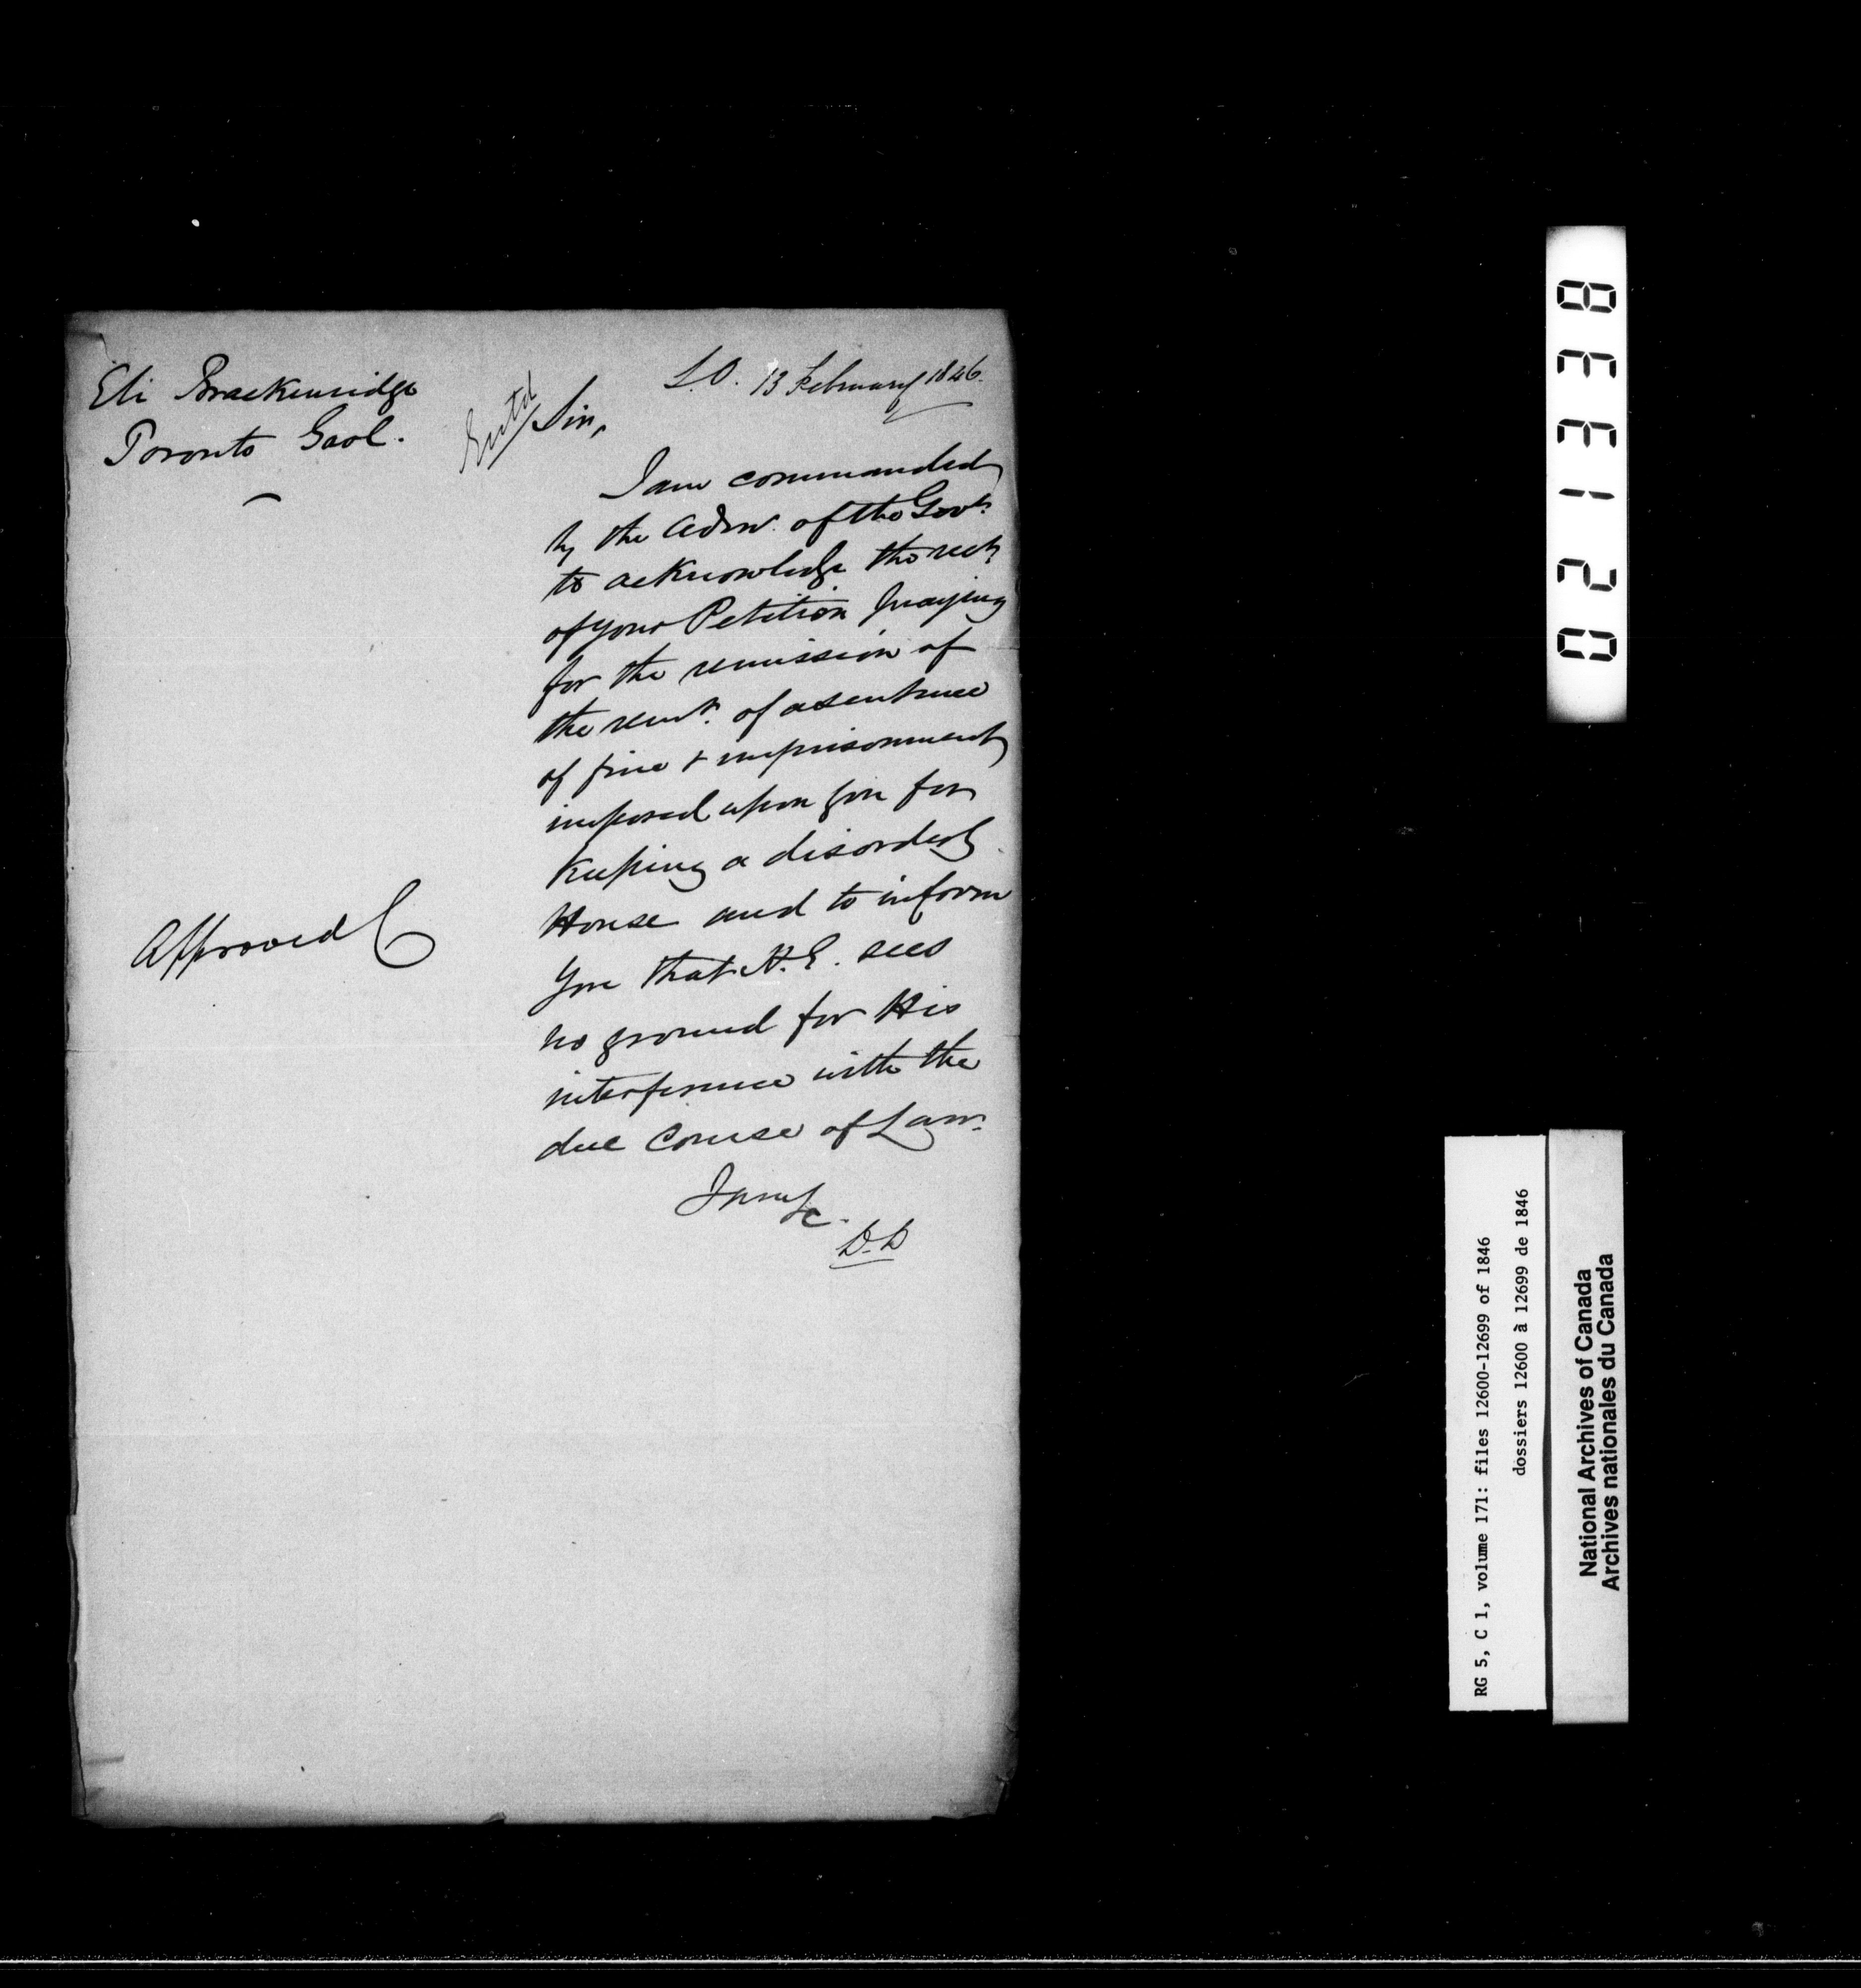 Eli Brackenridge
Toronto Gaol.
Entd
S.O. 13 February 1846.
Sir,
I am commanded
by the Admr. of the Govt.
to acknowledge the rect
of your Petition praying
for the remission of
the remr. of a sentence
of fine & imprisonment
imposed upon you for
keeping a disorderly
House and to inform
you that H.E. sees
no ground for His
interference with the
due course of Law.
&c.
D.D
Approved C
021338
RG 5, C 1, volume 171: files 12600-12699 of 1846
dossiers 12600 à 12699 de 1846
National Archives of Canada
Archives nationales du Canada